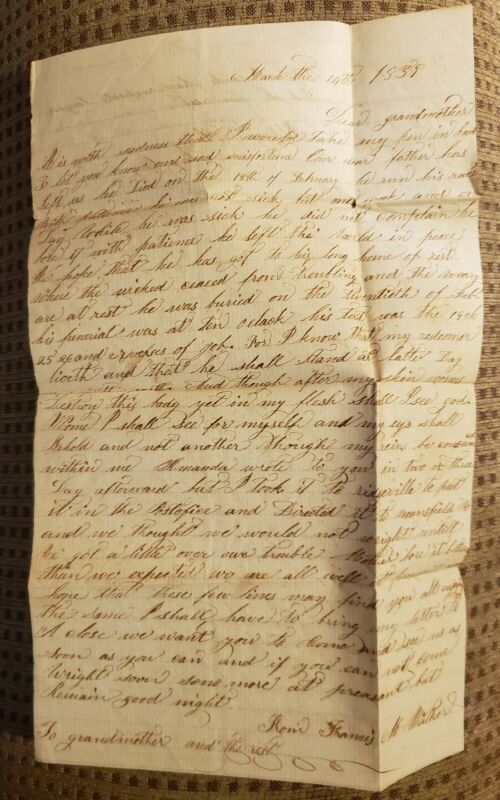 March the 14th 1838
Dear grandmother
It is with sadness that I now take my pen in hand
to let you know our sad misfortune Our dear father has
left us he Died on the 18th of February he run his race
with patience he was not sick but one week and
Day While he was sick he did not complain he
bore it with patience he left the world in peace
the hope that he has got to his long home of rest
where the wicked ceaced from troubling and the weary
are at rest he was buried on the twentieth of Feb
his funeral was at ten oclock his text was the 19ch
25 26 and 27 verses of Job. For I know that my redeemer
liveth and that he shall stand at latter day
And though after my skin worms
Destroy this body yet in my flesh shall I see god
Whome I shall see for myself and my eys shall
Behold and not another though my reins be consumed
within me Amanda wrote to you in two or three
Day afterward but I took it to ridgeville to put
it in the Postofice and Directed it to mansfield
and we thought we would not wright untill
we got a little over our trouble Mother bore it better
than we expected we are all well
hope that these few lines may find you all enjoy
the same I shall have to bring my letter to
A close we want you to Come and see us as
soon as you can and if you can not come
Wright soon some more at preasant but
Remain good night
From Francis M Walker
To grandmother and the rest